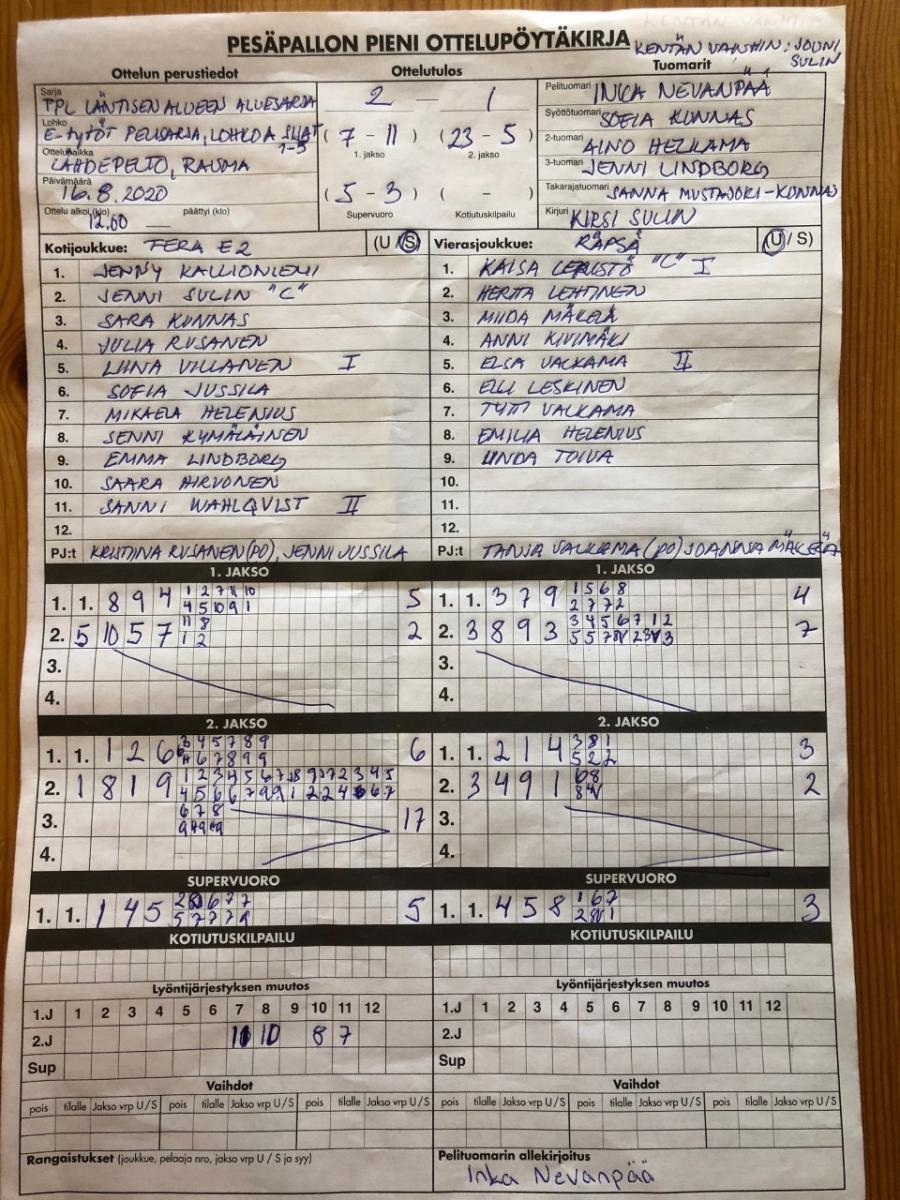 PESÄPALLON PIENI OTTELUPÖYTÄKIRJA
KENTÄN VANHIN: JOUNI SULIN
Ottelun perustiedot
Ottelutulos
Tuomarit
Sarja
TPL LÄNTISEN ALUEEN ALUESARJA
Lohko
E-tytöt PELISARJA, LOHKO A, SIJAT 1-5
Ottelupaikka
LÄHDEPELTO, RAUMA
Päivämäärä
16.8.2020
Ottelu alkoi (klo) 12.00 päättyi (klo) —
2 — 1
(7 - 11) (23 - 5)
1. jakso 2. jakso
(5 - 3) ( - )
Supervuoro Kotiutuskilpailu
Pelituomari INKA NEVANPÄÄ
Syöttötuomari SOFIA KUNNAS
2-tuomari AINO HELKAMA
3-tuomari JENNI LINDBORG
Takarajatuomari SANNA MUSTAJOKI-KUNNAS
Kirjuri KIRSI SULIN
Kotijoukkue: FERA E2 (U/S)
1. JENNY KALLIONIEMI
2. JENNI SULIN "C"
3. SARA KUNNAS
4. JULIA RUSANEN
5. LIINA VILLANEN I
6. SOFIA JUSSILA
7. MIKAELA HELENIUS
8. SENNI KYMÄLÄINEN
9. EMMA LINDBORG
10. SAARA HIRVONEN
11. SANNI WAHLQVIST II
12.
PJ:t KRISTIINA RUSANEN (PO), JENNI JUSSILA
Vierasjoukkue: RÄPSÄ (U/S)
1. KAISA LEPISTÖ "C" I
2. HERTTA LEHTINEN
3. MIIDA MÄKELÄ
4. ANNI KIVIMÄKI
5. ELSA VALKAMA II
6. ELLI LESKINEN
7. TYTTI VALKAMA
8. EMILIA HELENIUS
9. LINDA TOIVA
10.
11.
12.
PJ:t TANJA VALKAMA (PO) JOANNA MÄKELÄ
1. JAKSO
1. 1. 8 9 4 1 2 7 11 10 5
4 5 10 9 1
2. 5 10 5 7 11 8 2
1 2
3.
4.
1. JAKSO
1. 1. 3 7 9 1 5 6 8 4
2 7 7 2
2. 3 8 9 3 3 4 5 6 7 1 2 7
3.
4.
2. JAKSO
1. 1. 1 2 6 3 4 5 7 8 9 6
6 7 8 9 9
2. 1 8 1 9
3. 6 7 8 17
4.
2. JAKSO
1. 1. 2 1 4 3 8 1 3
5 2 2
2. 3 4 9 1 2
3.
4.
SUPERVUORO
1. 1. 1 4 5 5
SUPERVUORO
1. 1. 4 5 8 1 6 7 3
KOTIUTUSKILPAILU
KOTIUTUSKILPAILU
Lyöntijärjestyksen muutos
1.J 1 2 3 4 5 6 7 8 9 10 11 12
2.J 11 10 8 7
Sup
Lyöntijärjestyksen muutos
1.J 1 2 3 4 5 6 7 8 9 10 11 12
2.J
Sup
Vaihdot
pois tilalle Jakso vrp U/S pois tilalle Jakso vrp U/S pois tilalle Jakso vrp U/S
Vaihdot
pois tilalle Jakso vrp U/S pois tilalle Jakso vrp U/S pois tilalle Jakso vrp U/S
Rangaistukset (joukkue, pelaaja nro, jakso vrp U / S ja syy)
Pelituomarin allekirjoitus
Inka Nevanpää